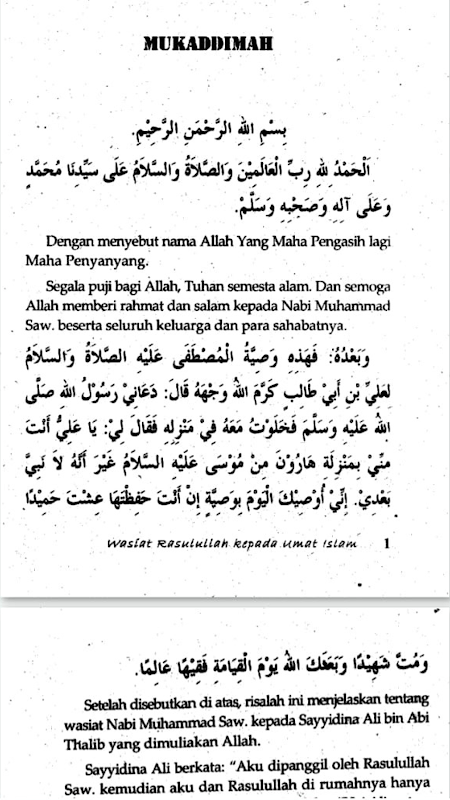 MUKADDIMAH
بِسْمِ اللهِ الرَّحْمَنِ الرَّحِيْمِ.
اَلْحَمْدُ لِلهِ رَبِّ الْعَالَمِيْنَ وَالصَّلاَةُ وَالسَّلاَمُ عَلَى سَيِّدِنَا مُحَمَّدٍ
وَعَلَى آلِهِ وَصَحْبِهِ وَسَلَّمْ.
Dengan menyebut nama Allah Yang Maha Pengasih lagi
Maha Penyanyang.
Segala puji bagi Allah, Tuhan semesta alam. Dan semoga
Allah memberi rahmat dan salam kepada Nabi Muhammad
Saw. beserta seluruh keluarga dan para sahabatnya.
وَبَعْدُهُ: فَهَذِهِ وَصِيَّةُ الْمُصْطَفَى عَلَيْهِ الصَّلاَةُ وَالسَّلاَمُ
لِعَلِيِّ بْنِ أَبِيْ طَالِبٍ كَرَّمَ اللهُ وَجْهَهُ قَالَ: دَعَانِيْ رَسُوْلُ اللهِ صَلَّى
اللهُ عَلَيْهِ وَسَلَّمَ فَخَلَوْتُ مَعَهُ فِيْ مَنْزِلِهِ فَقَالَ لِيْ: يَا عَلِيُّ أَنْتَ
مِنِّيْ بِمَنْزِلَةِ هَارُوْنَ مِنْ مُوْسَى عَلَيْهِ السَّلاَمُ غَيْرَ أَنَّهُ لاَ نَبِيَّ
بَعْدِيْ. إِنِّيْ أُوْصِيْكَ الْيَوْمَ بِوَصِيَّةٍ إِنْ أَنْتَ حَفِظْتَهَا عِشْتَ حَمِيْدًا
Wasiat Rasulullah kepada Umat Islam 1
وَمُتَّ شَهِيْدًا وَبَعَثَكَ اللهُ يَوْمَ الْقِيَامَةِ فَقِيْهًا عَالِمًا.
Setelah disebutkan di atas, risalah ini menjelaskan tentang
wasiat Nabi Muhammad Saw. kepada Sayyidina Ali bin Abi
Thalib yang dimuliakan Allah.
Sayyidina Ali berkata: "Aku dipanggil oleh Rasulullah
Saw. kemudian aku dan Rasulullah di rumahnya hanya